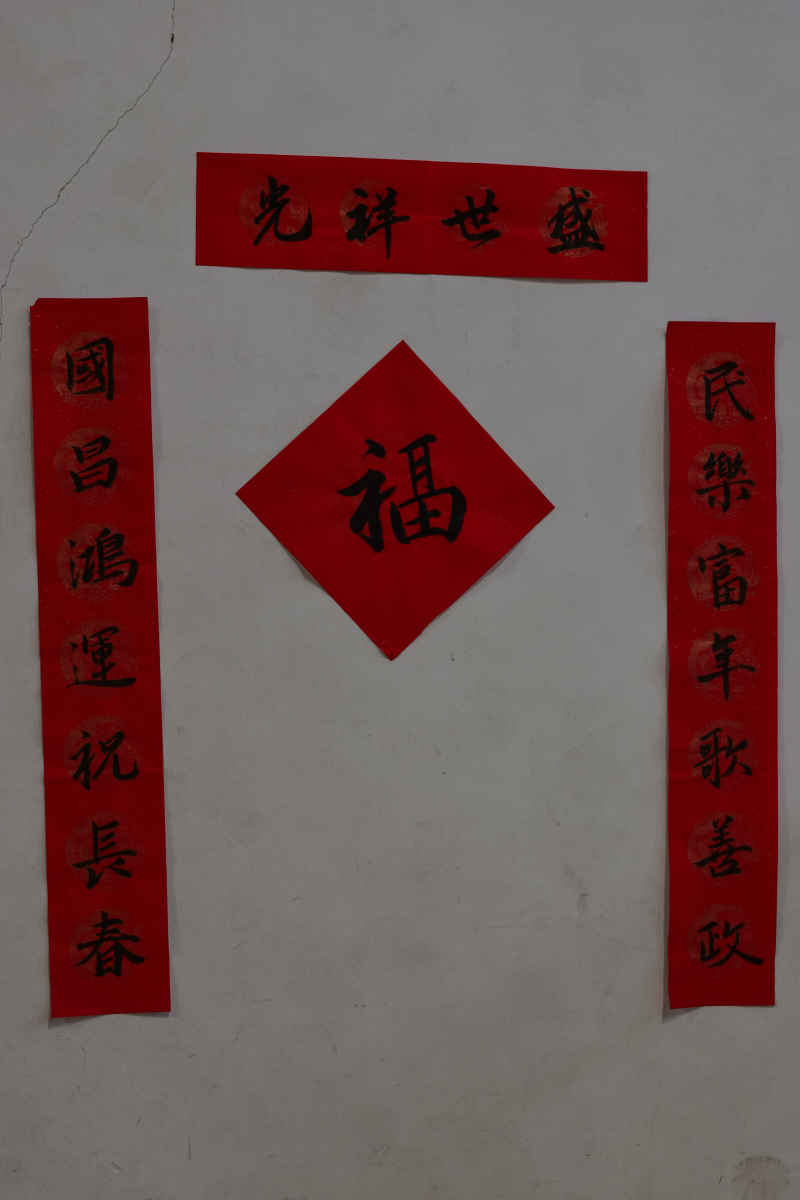 盛世祥光
民樂富年歌善政
福
國昌鴻運祝長春